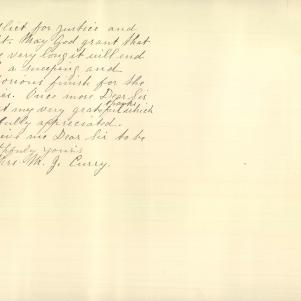 flict for justice and
t. May God grant that
e very long it will end
a sweeping and
orious finish for the
es. Once more Dear Sir
t my very grateful thanks which
fully appreciated.
eve me Dear Sir to be
thfully yours
Mrs. M. J. Curry.